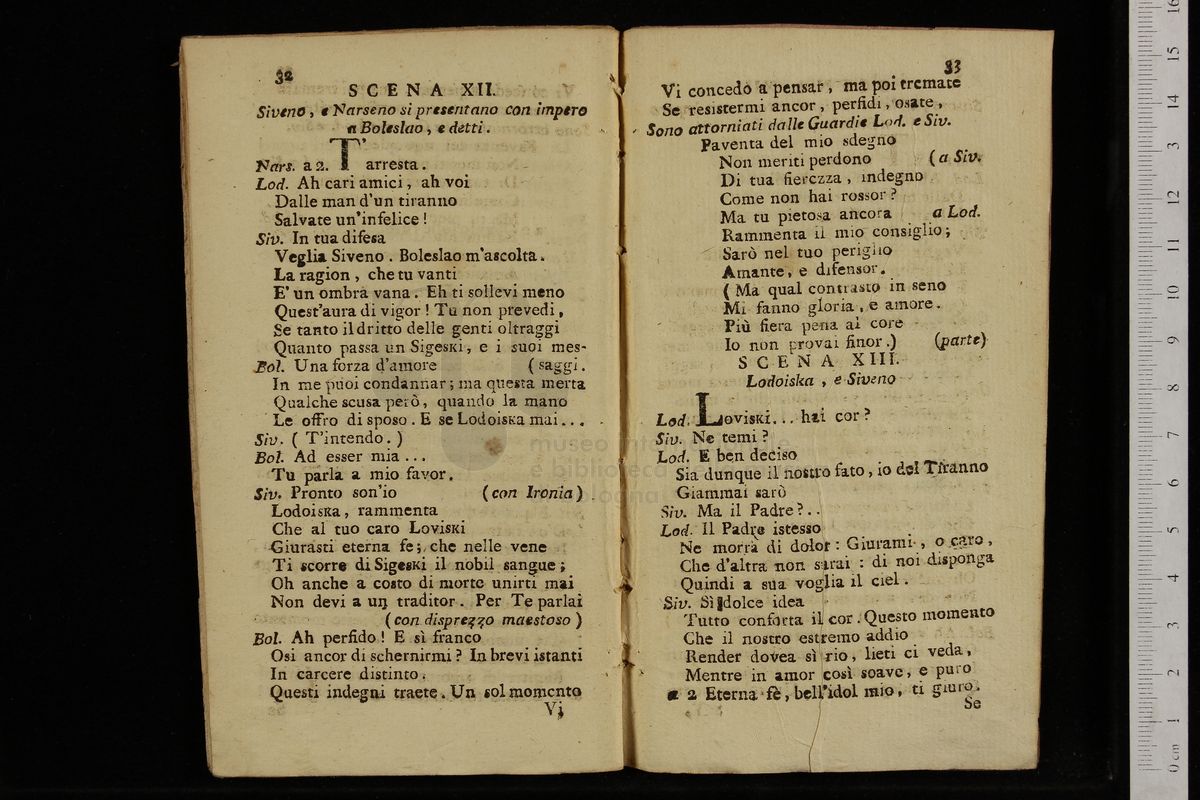 32
SCENA XII.
Siveno, e Narseno si presentano con impero
a Boleslao, e detti.
Nars. a 2. T'arresta.
Lod. Ah cari amici, ah voi
Dalle man d'un tiranno
Salvate un'infelice!
Siv. In tua difesa
Veglia Siveno. Boleslao m'ascolta.
La ragion, che tu vanti
E' un ombra vana. Eh ti sollevi meno
Quest'aura di vigor! Tu non prevedi,
Se tanto il dritto delle genti oltraggi
Quanto passa un Sigeski, e i suoi mes-
Bol. Una forza d'amore (saggi.
In me puoi condannar; ma questa merta
Qualche scusa però, quando la mano
Le offro di sposo. E se Lodoiska mai...
Siv. (T'intendo.)
Bol. Ad esser mia...
Tu parla a mio favor.
Siv. Pronto son'io (con Ironia)
Lodoiska, rammenta
Che al tuo caro Loviski
Giurasti eterna fe; che nelle vene
Ti scorre di Sigeski il nobil sangue;
Oh anche a costo di morte unirti mai
Non devi a un traditor. Per Te parlai
(con disprezzo maestoso)
Bol. Ah perfido! E sì franco
Osi ancor di schernirmi? In brevi istanti
In carcere distinto.
Questi indegni traete. Un sol momento
Vi
33
Vi concedo a pensar, ma poi tremate
Se resistermi ancor, perfidi, osate,
Sono attorniati dalle Guardie Lod. e Siv.
Paventa del mio sdegno
Non meriti perdono (a Siv.
Di tua fierezza, indegno
Come non hai rossor?
Ma tu pietosa ancora a Lod.
Rammenta il mio consiglio;
Sarò nel tuo periglio
Amante, e difensor.
(Ma qual contrasto in seno
Mi fanno gloria, e amore.
Più fiera pena al core
Io non provai finor.) (parte)
SCENA XIII.
Lodoiska, e Siveno
Lod. Loviski... hai cor?
Siv. Ne temi?
Lod. E ben deciso
Sia dunque il nostro fato, io del Tiranno
Giammai sarò
Siv. Ma il Padre?..
Lod. Il Padre istesso
Ne morrà di dolor: Giurami, o caro,
Che d'altra non sarai: di noi disponga
Quindi a sua voglia il ciel.
Siv. Sì dolce idea
Tutto conforta il cor. Questo momento
Che il nostro estremo addio
Render dovea sì rio, lieti ci veda,
Mentre in amor così soave, e puro
a 2 Eterna fè, bell'idol mio, ti giuro.
Se